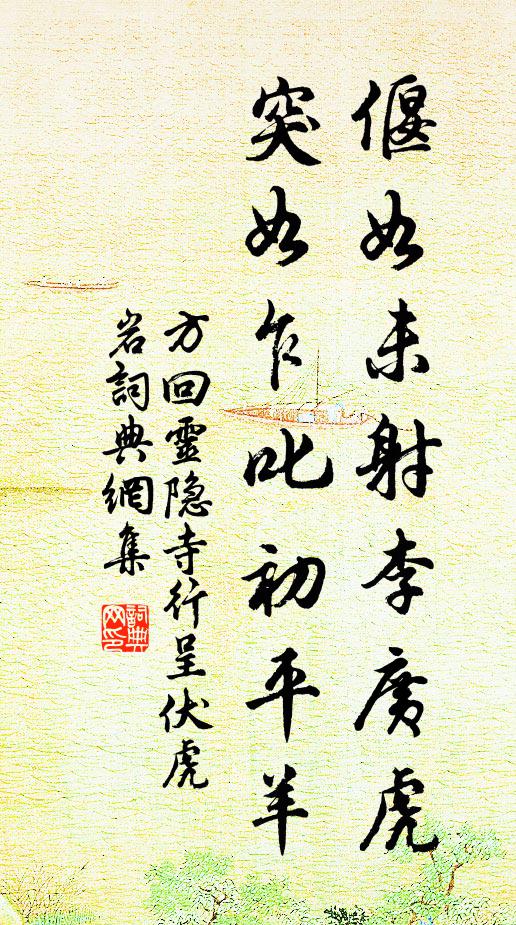 偃如未射李廣虎
突如乍叱初平羊
方回靈隐寺行呈伏虎
岩詞典網集
詞典网印